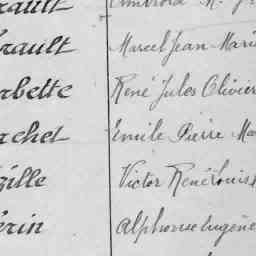 rault
rault Marcel Jean Mari
rbette René Jules Olivier
rchet Emile Pierre Ma
zille Victor René Louis
érin Alphonse Eugène